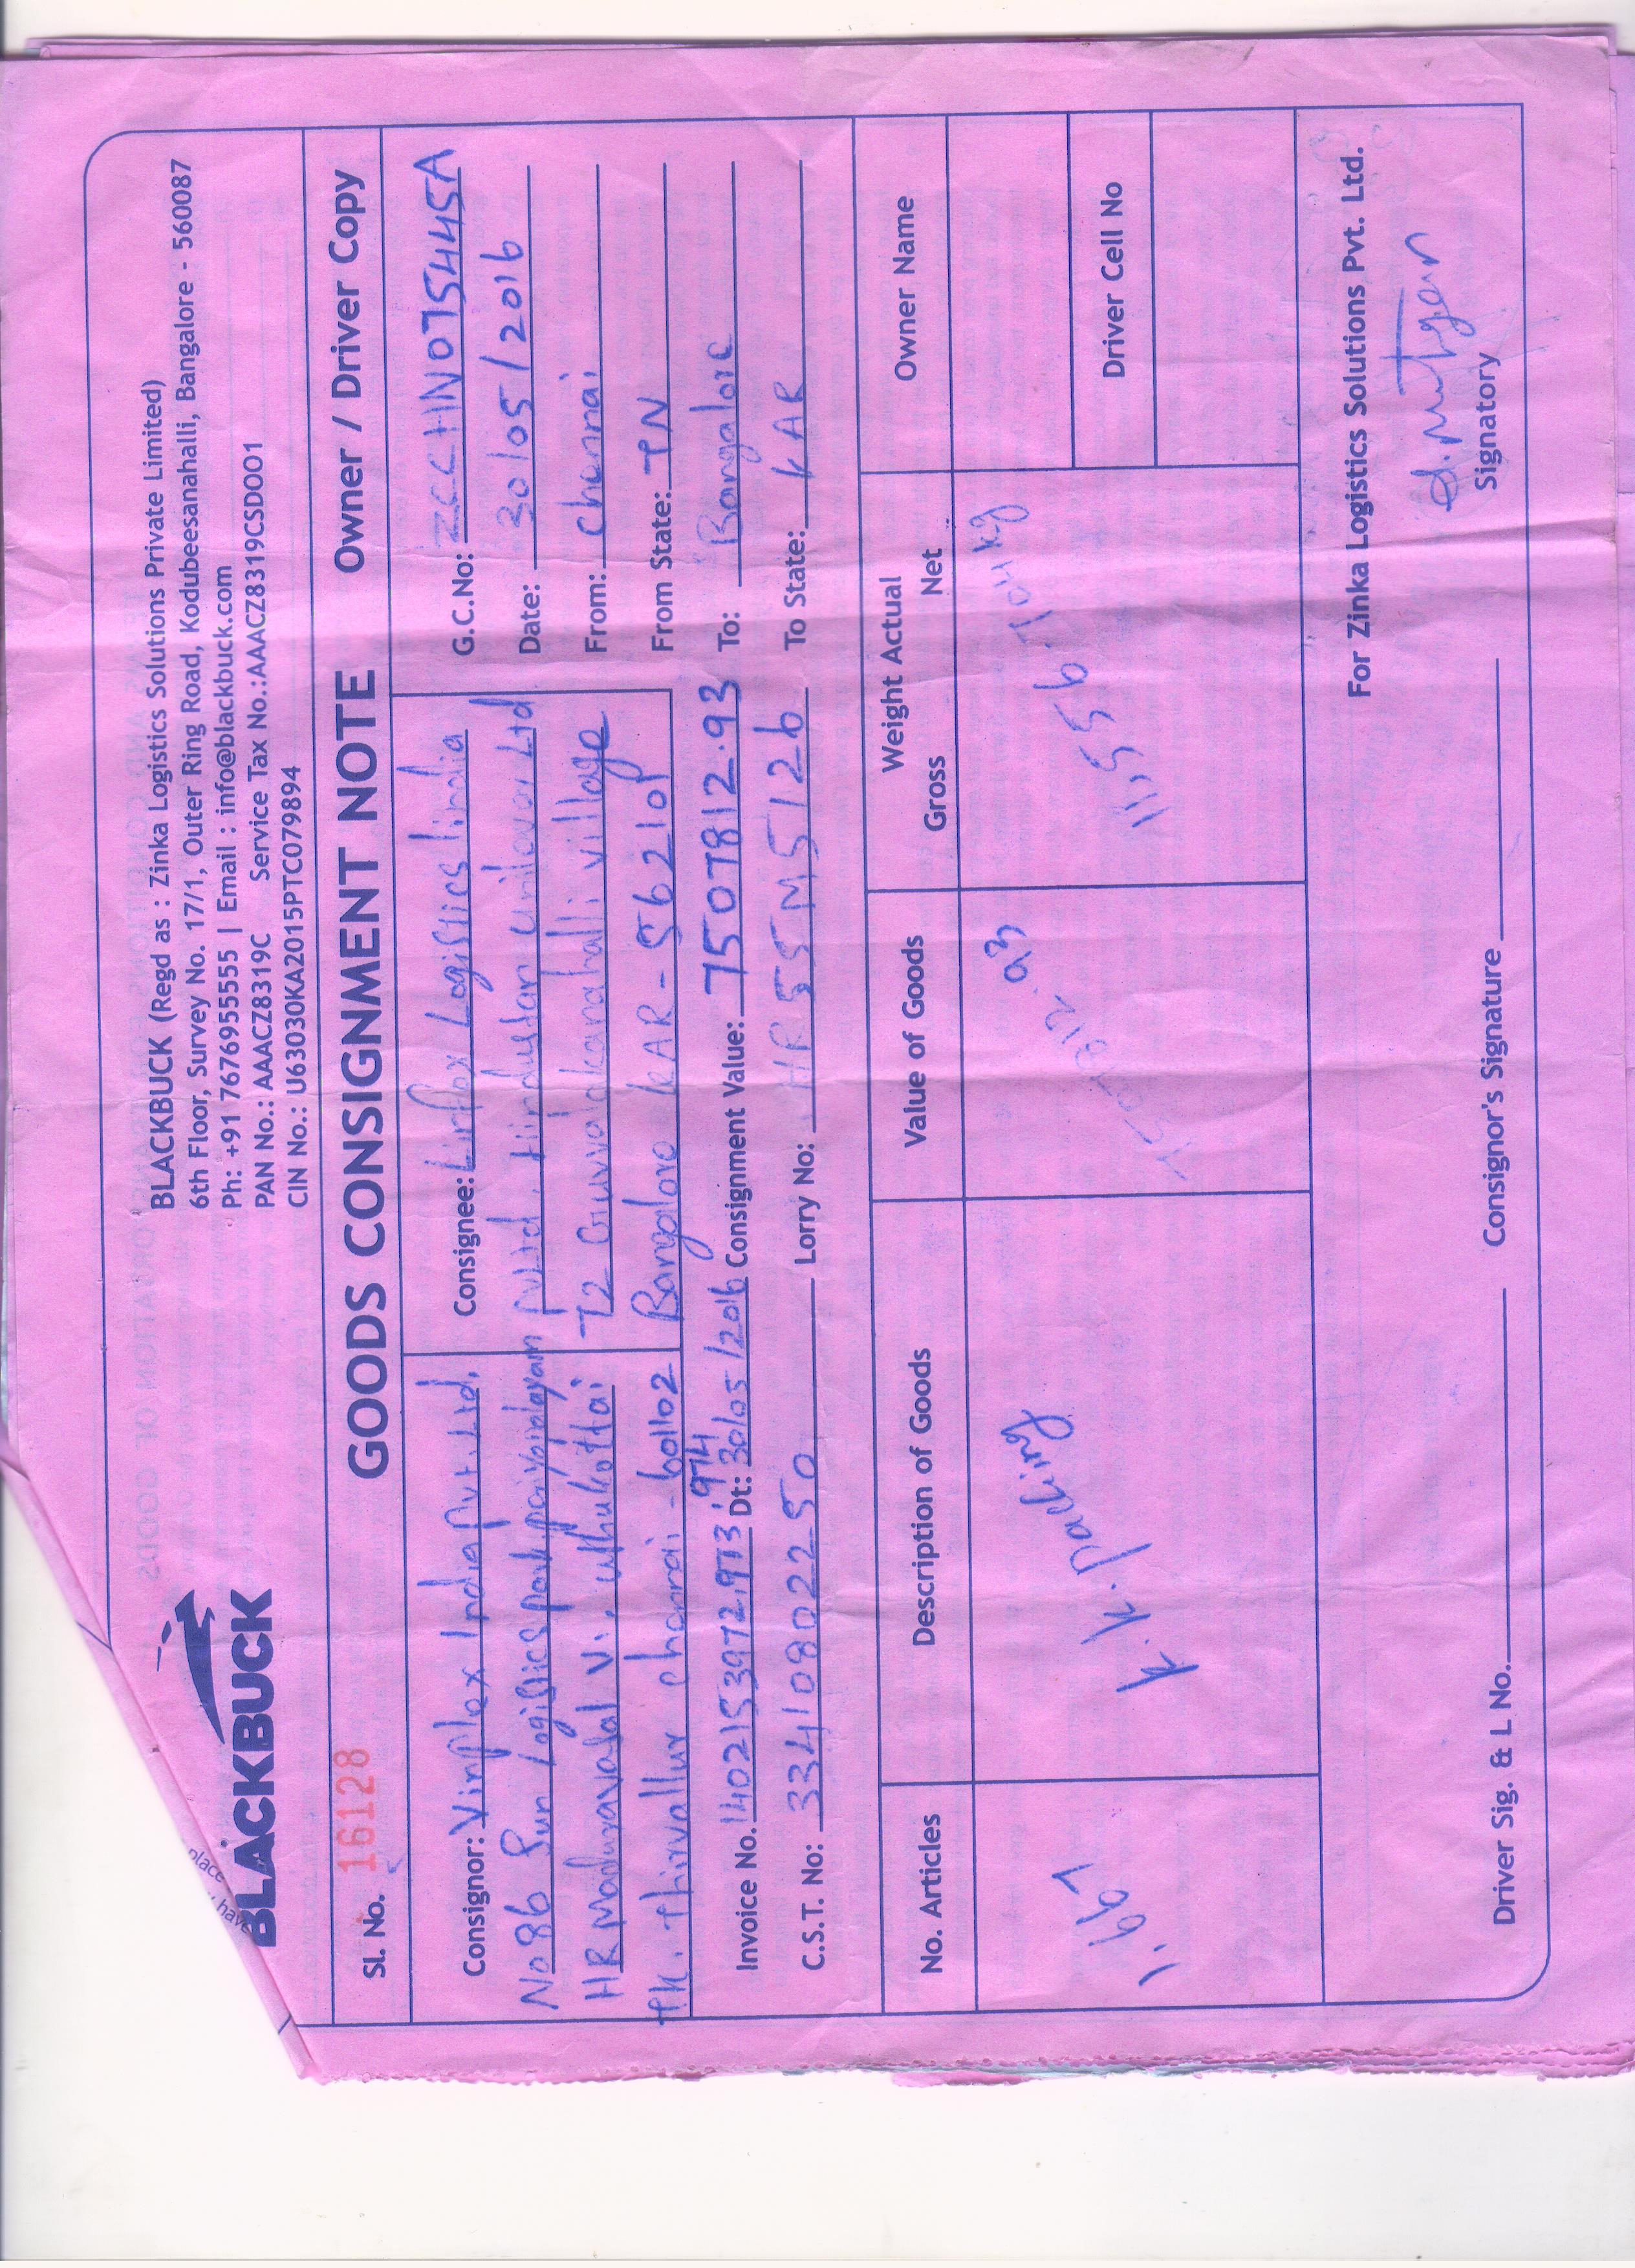 BLACKBUCK
BLACKBUCK (Regd as : Zinka Logistics Solutions Private Limited)
6th Floor, Survey No. 17/1, Outer Ring Road, Kodubeesanahalli, Bangalore - 560087
Ph: +91 7676955555 | Email : info@blackbuck.com
PAN No.: AAACZ8319C Service Tax No.:AAACZ8319CSD001
CIN No.: U63030KA2015PTC079894
place
y have
Sl. No. 16128 GOODS CONSIGNMENT NOTE Owner / Driver Copy
Consignor: Vinplex India Pvt. Ltd.
No 86 Sun Logistics park
HR Maduravalal Vi. uthukottai
tk. thirvallur chennai - 601102
Consignee: Linfox Logistics India
Pvt Ltd. Hindustan Unilever Ltd
72 village
Bangalore KAR - 56210
G.C.No: ZCCHN075445A
Date: 30/05/2016
From: chennai
From State: TN
To: Bangalore
To State: KAR
Invoice No. 1402153972,973,974 Dt: 30/05/2016 Consignment Value: 7507812.93
C.S.T. No: 33410802250 Lorry No: HR55M5126
No. Articles Description of Goods Value of Goods Weight Actual Owner Name
Gross Net
1.667 K.K. packing 7507812.93 11,556.704 kg
Driver Cell No
For Zinka Logistics Solutions Pvt. Ltd.
Driver Sig. & L No. Consignor's Signature Signatory